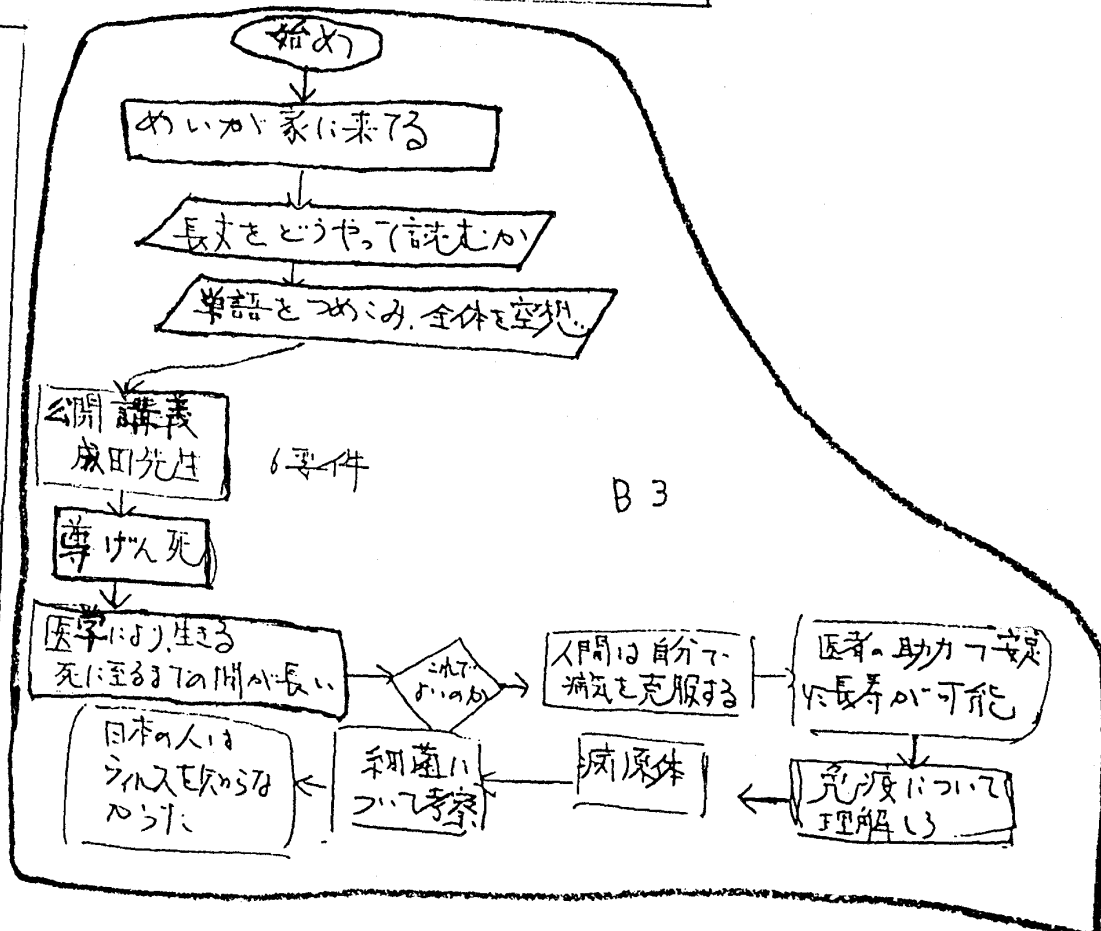 始め
めいが家に来てる
長文をどうやって読むか
単語をつめこみ、全体を空想
公開講義
成田先生
6要件
B3
尊げん死
医学により、生きる
死に至るまでの間が長い
これで
よいのか
人間は自分で
病気を克服する
医者の助力で
た長寿が可能
免疫について
理解しろ
病原体
細菌に
ついて考察
日本の人は
ウィルスを知らな
かった